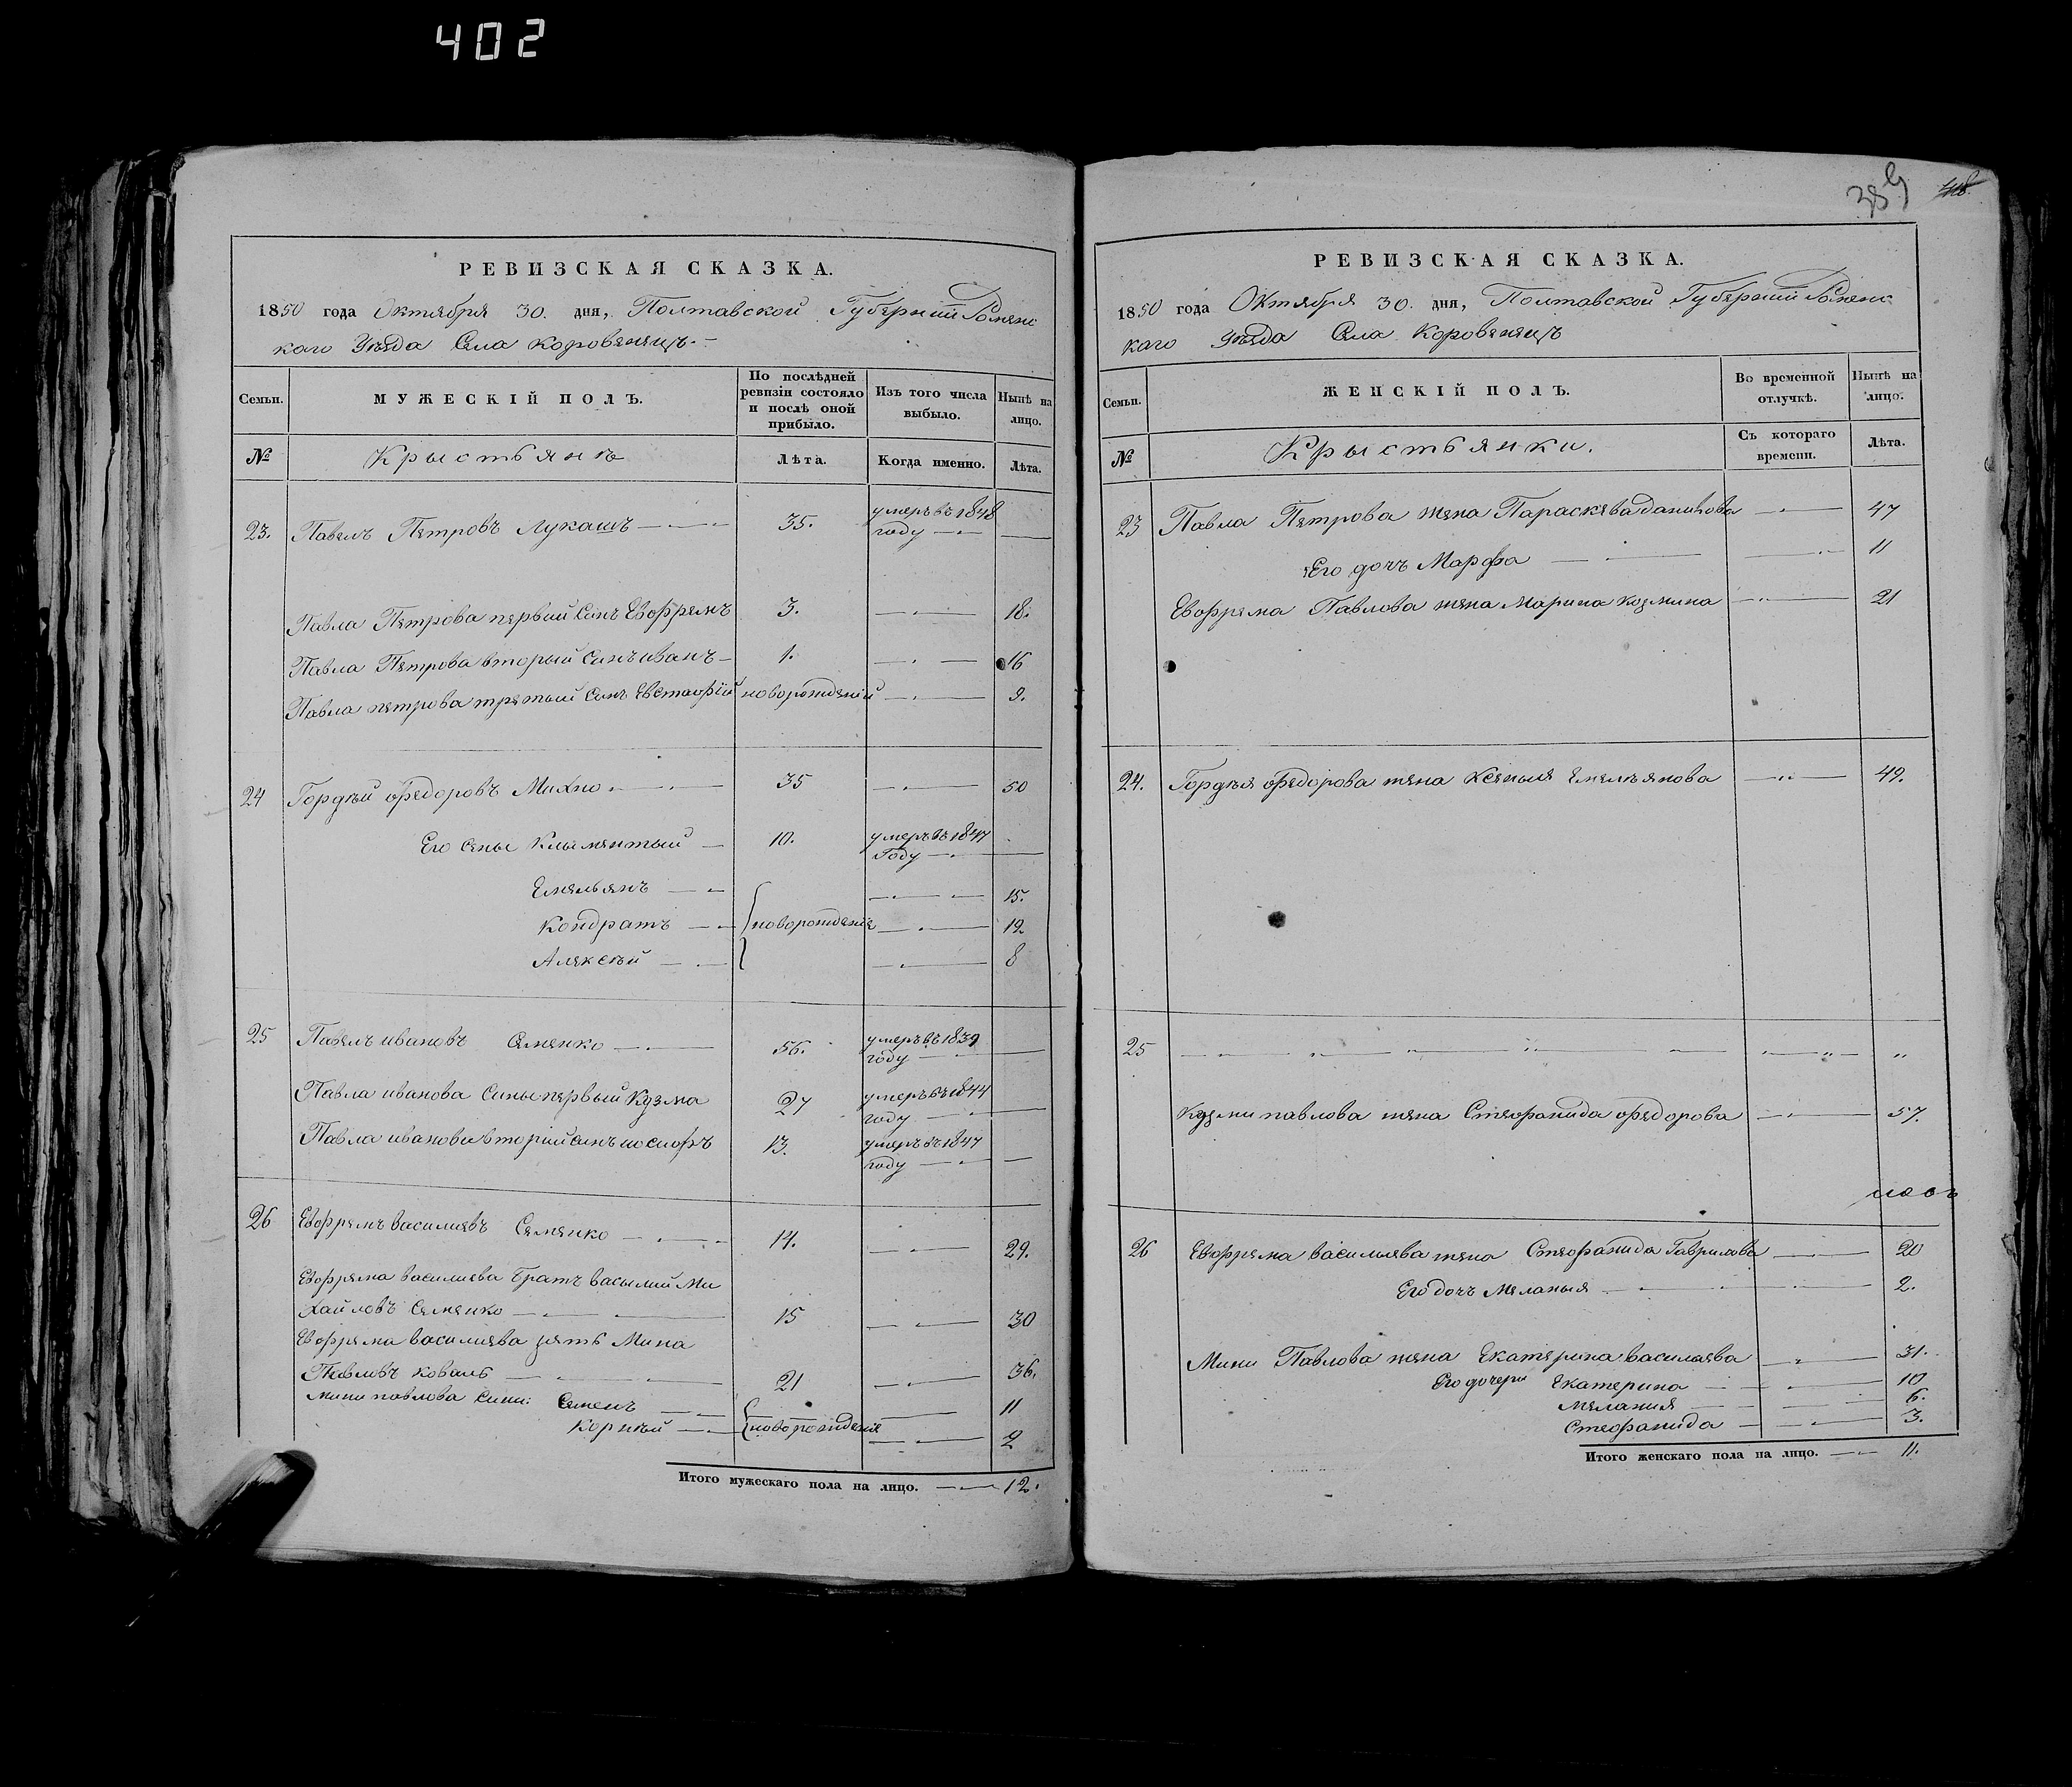 402
РЕВИЗСКАЯ СКАЗКА.
1850 года Октября 30. дня, Полтавской Губернии Роменс
каго Уезда Села Коровенецъ.
Семьи.
МУЖЕСКІЙ ПОЛЪ.
По послѣдней ревизіи состояло и послѣ оной прибыло.
Изъ того числа выбыло.
Нынѣ на лицо.
№
Крыстьяне
Лѣта.
Когда именно.
Лѣта.
23. Павелъ Петровъ Лукашъ 35. умеръ въ 1848 году
Павла Петрова первый Синъ Евфремъ 3. 18.
Павла Петрова вторый Синъ иванъ 1. 16
Павла петрова третый Синъ Евстафій новорожденій 9.
24 Гордѣй Федоровъ Михно 35 50
Его Сены Клыментый 10. умеръ въ 1847 Году
Емельянъ 15.
Кондратъ новорожденіе 12
Алексѣй 8
25 Павелъ ивановъ Семенко 56. умеръ въ 1839 году
Павла иванова Сины первый Кузма 27 умеръ въ 1844 году
Павла иванова вторій синъ иосифъ 13. умеръ въ 1847 году
26 Евфремъ василиевъ Семенко 14. 29.
Евфрема василиева братъ василий Ми
хайловъ Семенко 15 30
Евфрема василиева зять Мина
Павловъ коваль 21 36.
мини павлова Сини: Семенъ 11
Корнѣй новорожденіе 2
Итого мужескаго пола на лицо. 12.
389
418.
РЕВИЗСКАЯ СКАЗКА.
1850 года Октября 30. дня, Полтавской Губерний Роменс
каго Уезда Села Коровенецъ
Семьи.
ЖЕНСКІЙ ПОЛЪ.
Во временной отлучкѣ.
Нынѣ на лицо.
№
Крыстьянки.
Съ котораго времени.
Лѣта.
23 Павла Петрова жена Параскева данилова 47
Его дочъ Марфа 11
Евфрема Павлова жена Марина козмина 21
24. Гордѣя Федорова жена Ксенья Емелъянова 49.
25
Кузми павлова жена Стефанида федорова 57.
26 Евфрема васильева жена Стефанида Гаврилова 20
Его дочъ Меланья 2.
Мини Павлова жена Екатерина васильева 31.
Его дочери Екатерина 10
Мелания 6.
Стефанида 3.
Итого женскаго пола на лицо. 11.